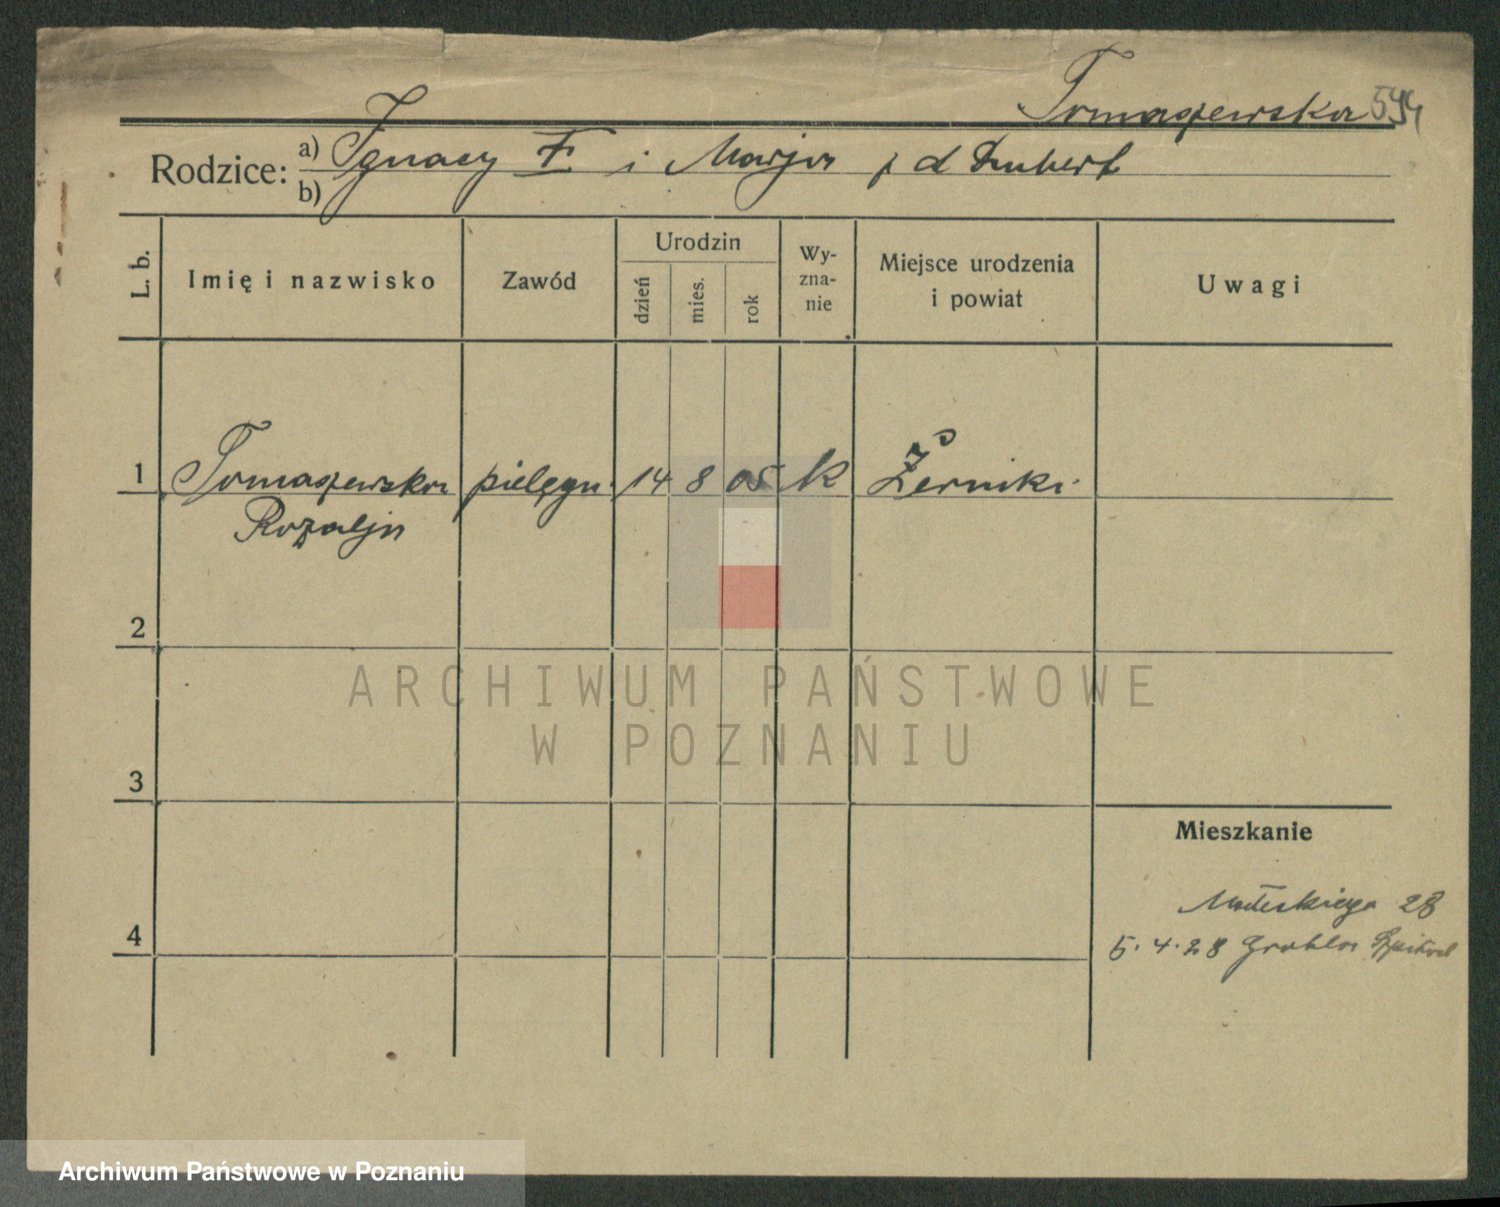 Tomaszewska 594
Rodzice: a) Ignacy T. i Marja z d
b)
L. b.
Imię i nazwisko
Zawód
Urodzin
dzień
mies.
rok
Wy-
zna-
nie
Miejsce urodzenia
i powiat
Uwagi
1 Tomaszewska pielęgn. 14 8 05 k Żerniki
Rozalja
2
3
4
Mieszkanie
28
5. 4. 28 Grobla Szpital
ARCHIWUM PAŃSTWOWE
W POZNANIU
Archiwum Państwowe w Poznaniu